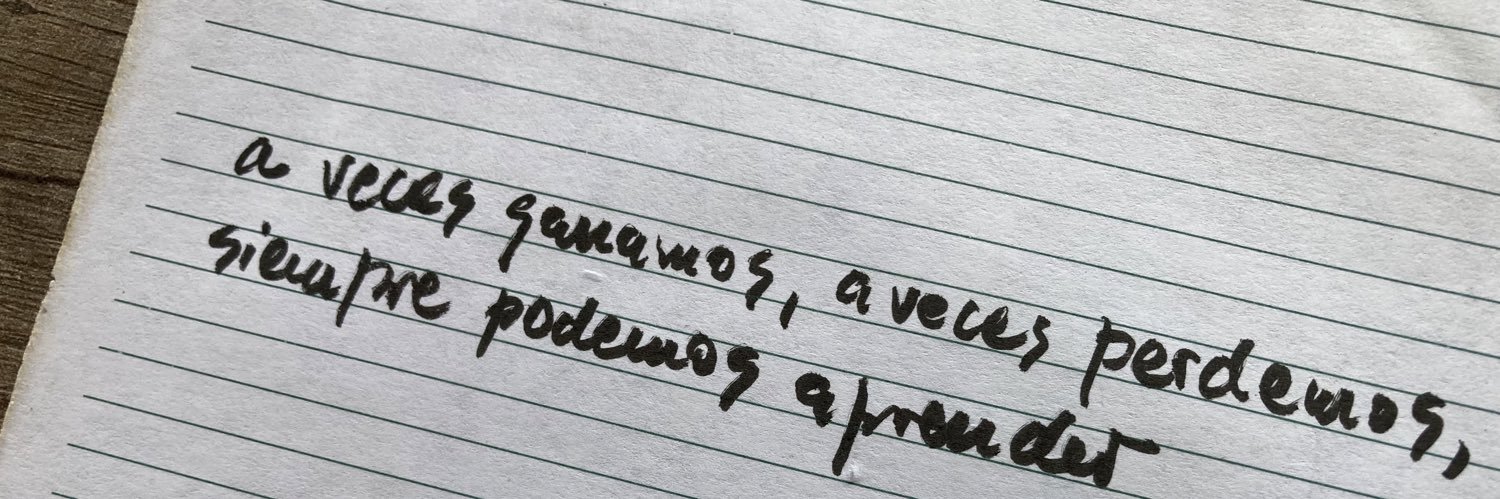 a veces ganamos, a veces perdemos,
siempre podemos aprender